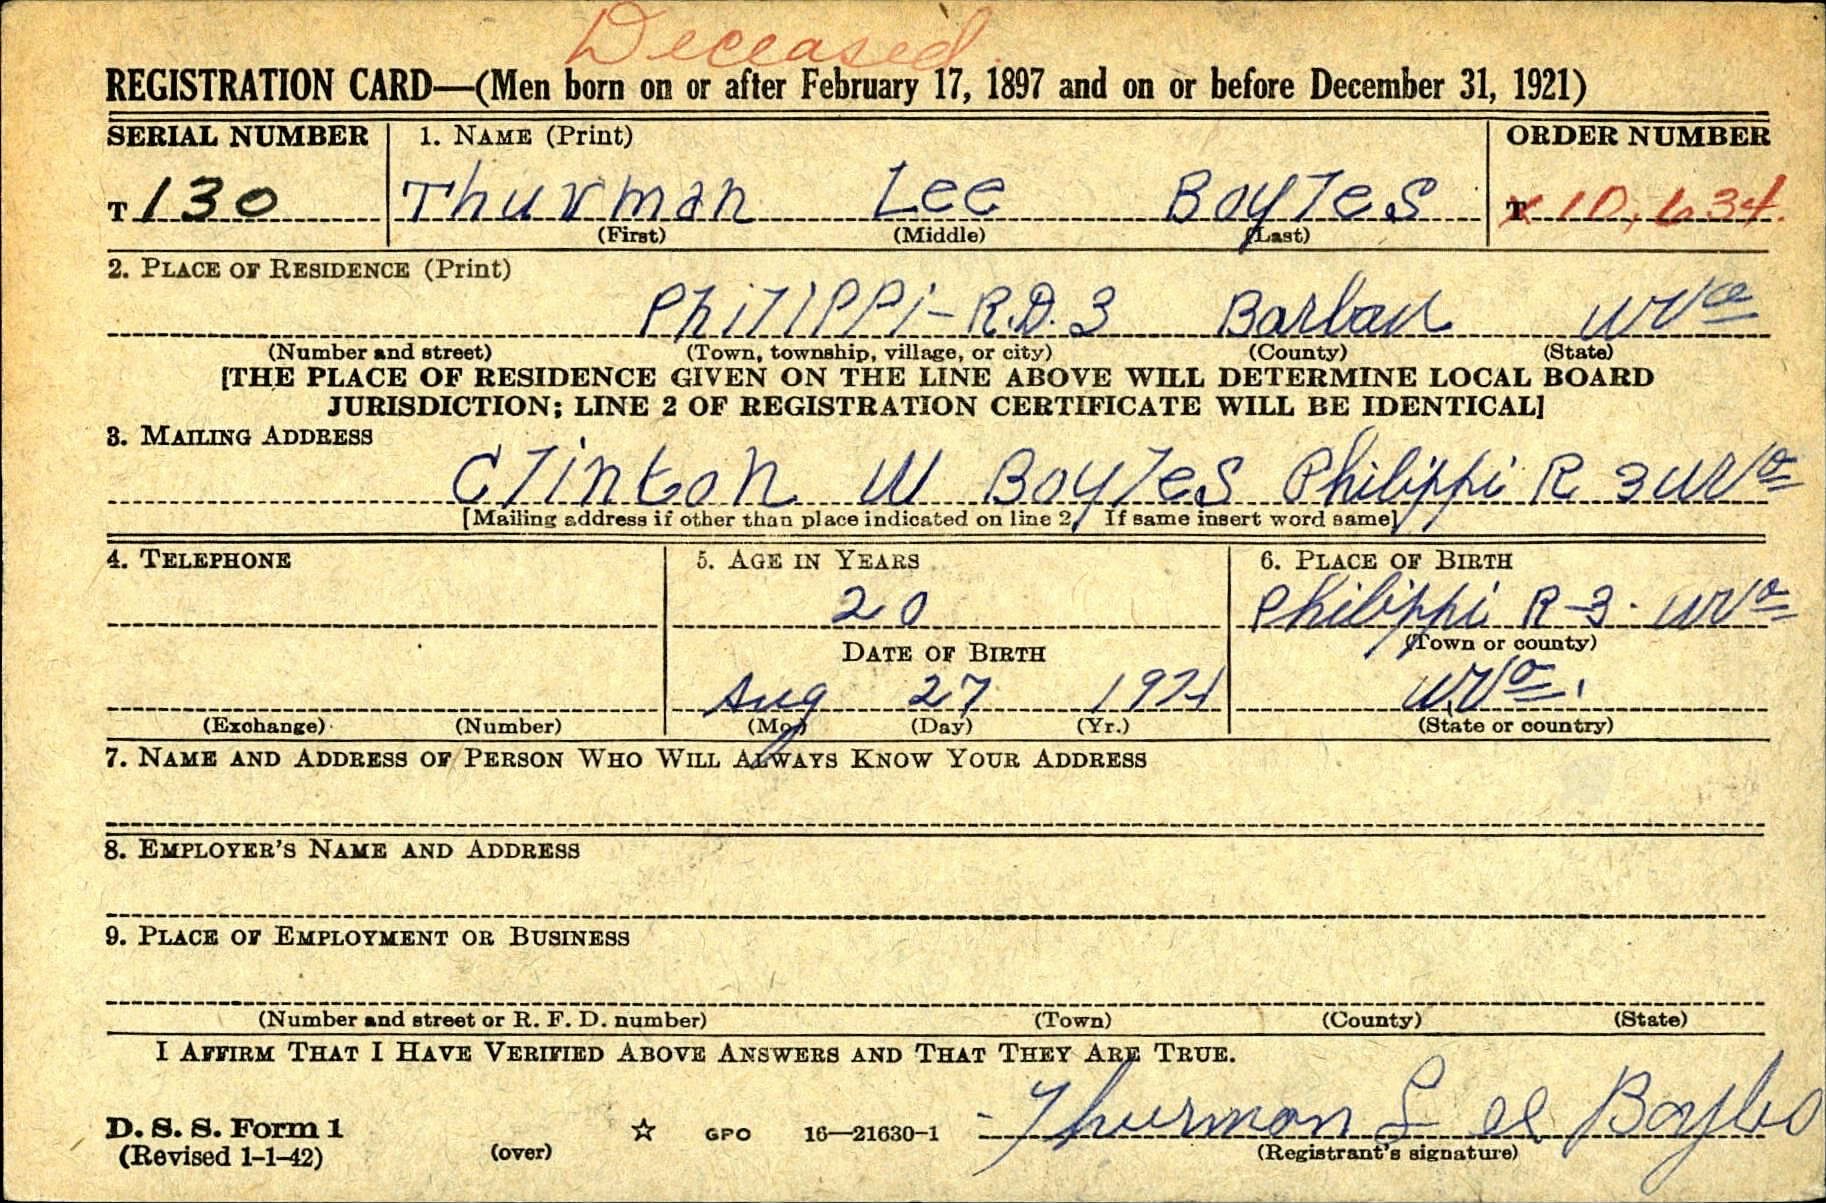 Deceased
REGISTRATION CARD—(Men born on or after February 17, 1897 and on or before December 31, 1921)
SERIAL NUMBER 1. NAME (Print) ORDER NUMBER
T 130 Thurman Lee Boyles T 10,634.
(First) (Middle) (Last)
2. PLACE OF RESIDENCE (Print)
Philippi-R.D. 3 Barbour WVa
(Number and street) (Town, township, village, or city) (County) (State)
[THE PLACE OF RESIDENCE GIVEN ON THE LINE ABOVE WILL DETERMINE LOCAL BOARD
JURISDICTION; LINE 2 OF REGISTRATION CERTIFICATE WILL BE IDENTICAL]
3. MAILING ADDRESS
Clinton W Boyles Philippi R 3 WVa
[Mailing address if other than place indicated on line 2. If same insert word same]
4. TELEPHONE 5. AGE IN YEARS 6. PLACE OF BIRTH
20 Philippi R-3. WVa
DATE OF BIRTH (Town or county)
Aug 27 1921 WVa.
(Exchange) (Number) (Mo.) (Day) (Yr.) (State or country)
7. NAME AND ADDRESS OF PERSON WHO WILL ALWAYS KNOW YOUR ADDRESS
8. EMPLOYER'S NAME AND ADDRESS
9. PLACE OF EMPLOYMENT OR BUSINESS
(Number and street or R. F. D. number) (Town) (County) (State)
I AFFIRM THAT I HAVE VERIFIED ABOVE ANSWERS AND THAT THEY ARE TRUE.
Thurmon Lee Boyles
D. S. S. Form 1 GPO 16—21630-1
(Revised 1-1-42) (over) (Registrant's signature)